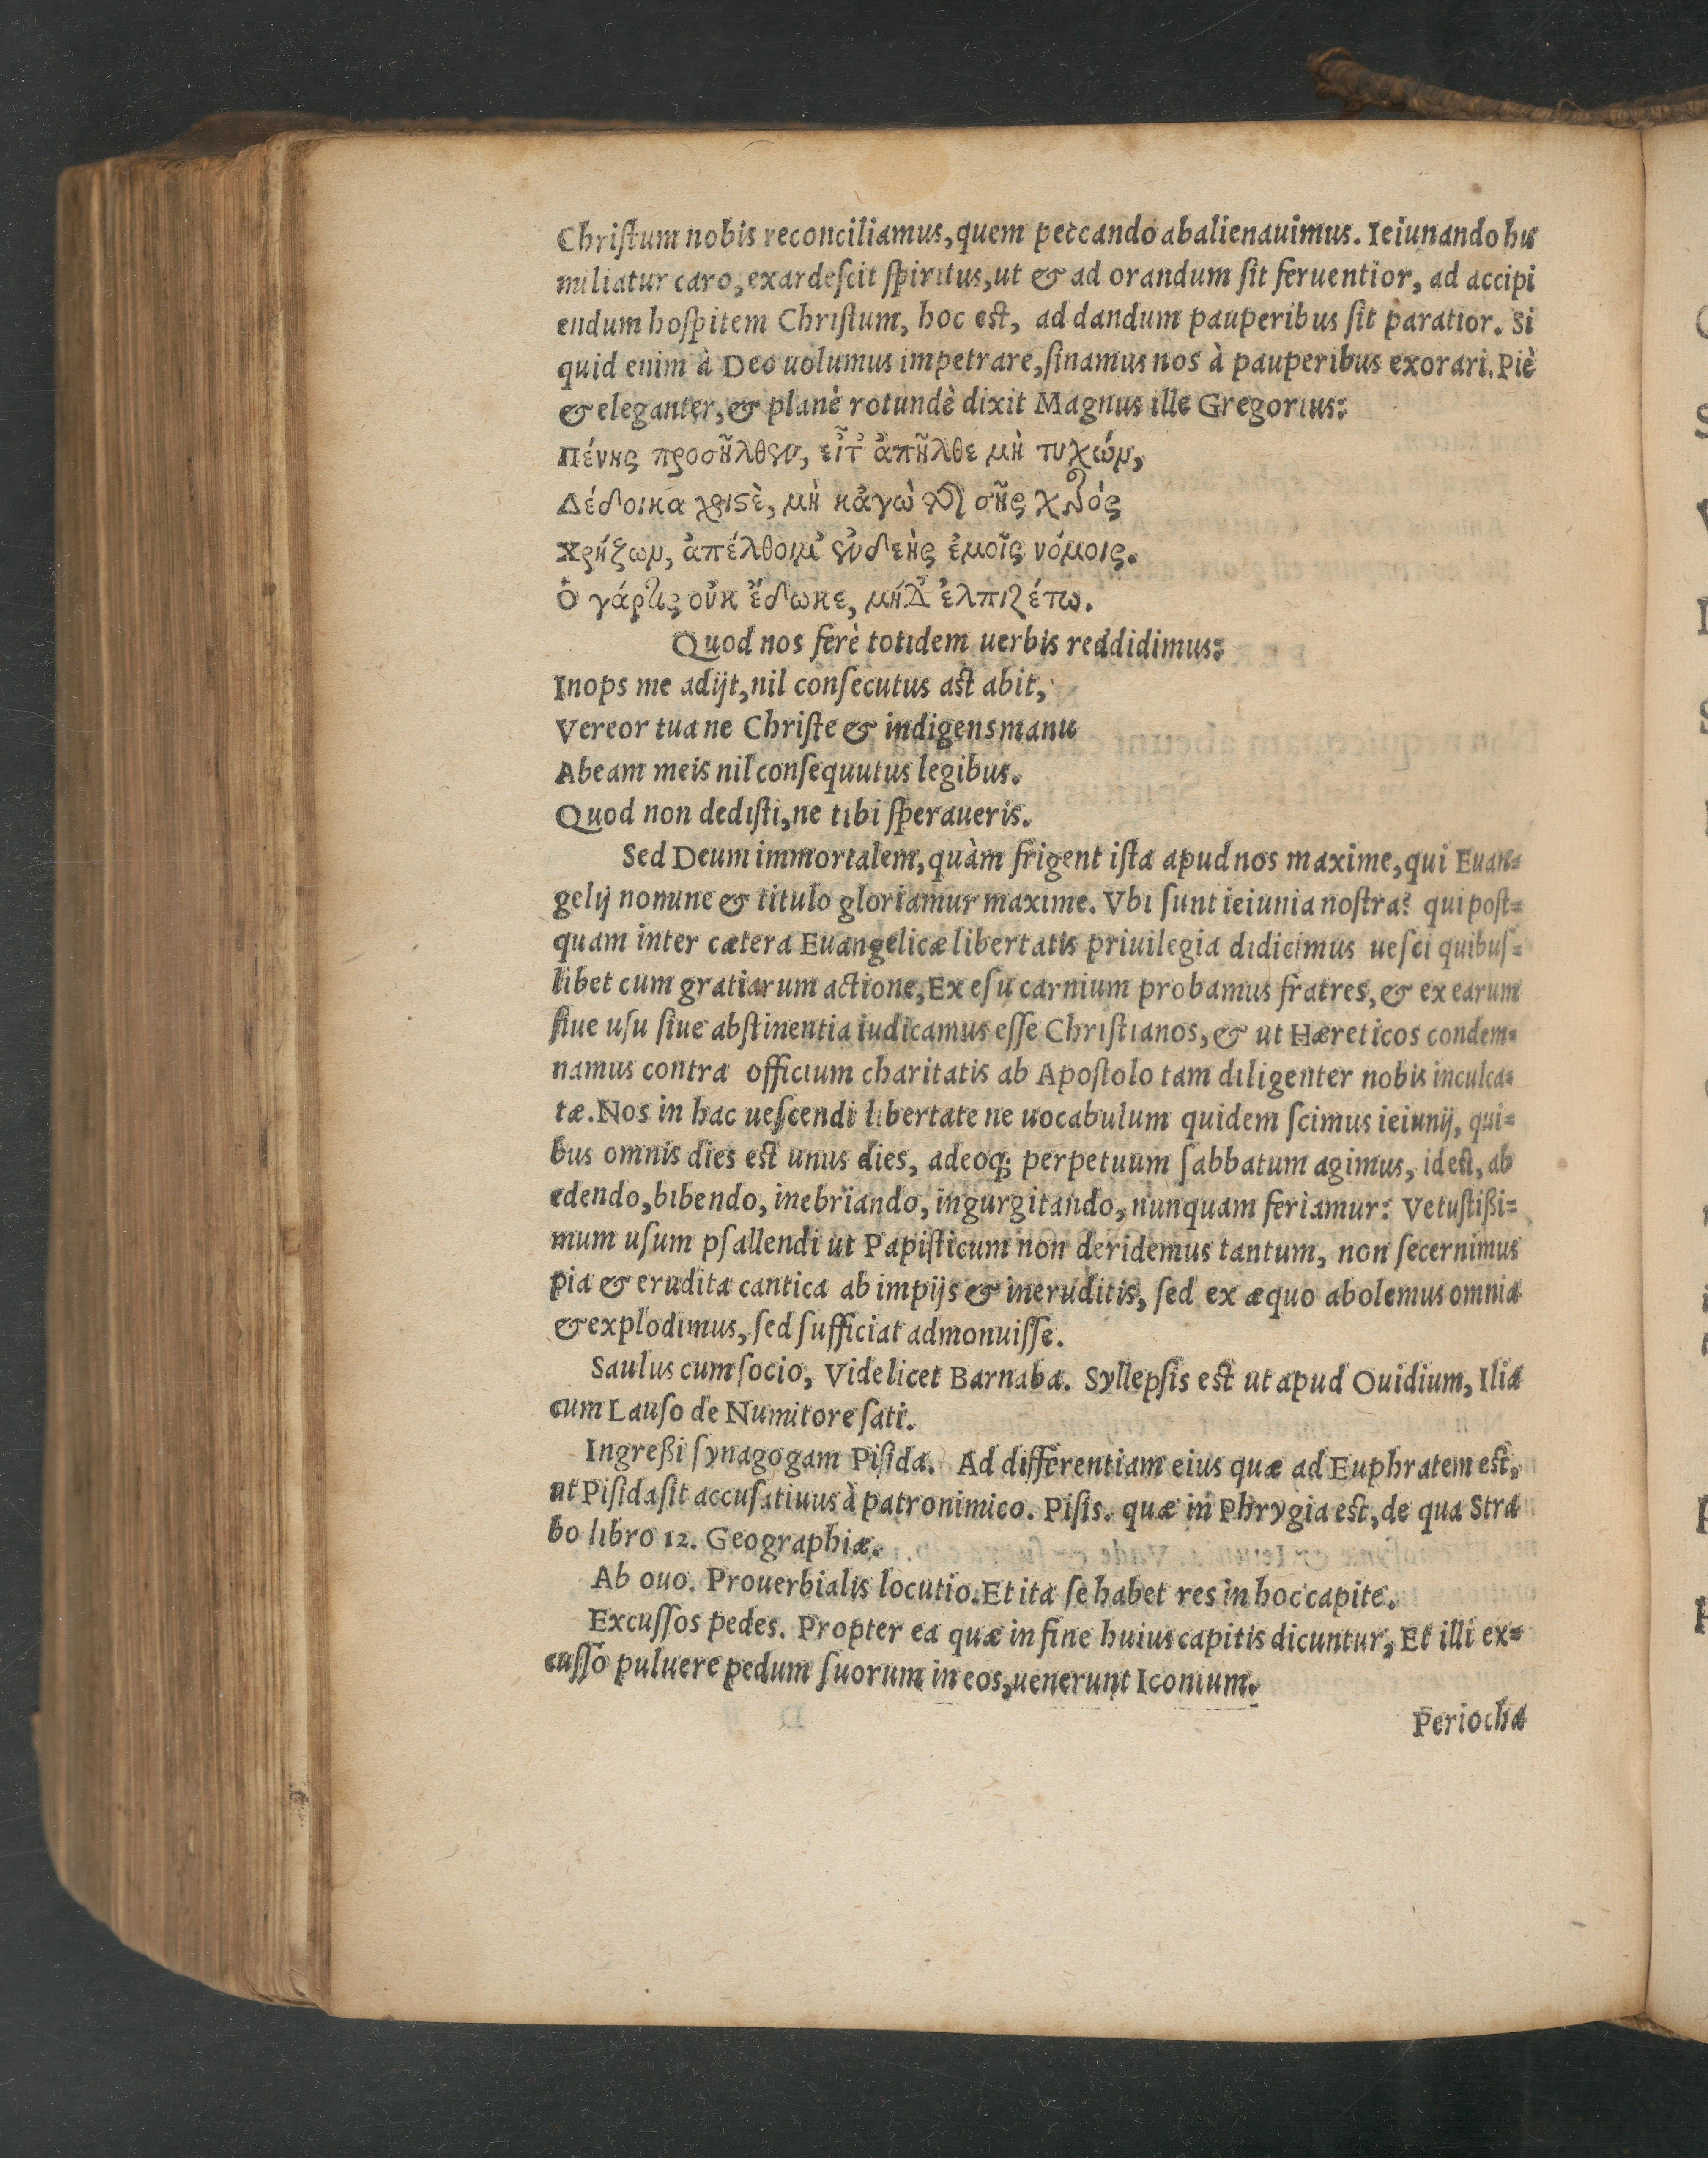 Chriſtum nobis reconciliamus, quem peccando abalienauimus. Ieiunando hu
miliatur caro, exardeſcit ſpiritus, ut & ad orandum ſit feruentior, ad accipi
endum hoſpitem Chriſtum, hoc eſt, ad dandum pauperibus ſit paratior. Si
quid enim à Deo uolumus impetrare, ſinamus nos à pauperibus exorari. Piè
& eleganter, & planè rotundè dixit Magnus ille Gregorius:
Πένης προσῆλθεν, εἶτ' ἀπῆλθε μὴ τυχών,
Δέδοικα χριστὲ, μὴ κἀγὼ τῆς σῆς χερὸς
Χρῄζων, ἀπέλθοιμ' οὐδενὸς ἐμοῖς νόμοις.
Ὁ γάρ τις οὐκ ἔδωκε, μήδ' ἐλπιζέτω.
Quod nos ferè totidem uerbis reddidimus:
Inops me adijt, nil conſecutus aſt abit,
Vereor tua ne Chriſte & indigens manu
Abeam meis nil conſequutus legibus.
Quod non dediſti, ne tibi ſperaueris.
Sed Deum immortalem, quàm frigent iſta apud nos maxime, qui Euan-
gelij nonune & titulo gloriamur maxime. Vbi ſunt ieiunia noſtra? qui poſt-
quam inter cætera Euangelicæ libertatis priuilegia didicimus ueſci quibuſ-
libet cum gratiarum actione, Ex eſu carnium probamus fratres, & ex earum
ſiue uſu ſiue abſtinentia iudicamus eſſe Chriſtianos, & ut Hæreticos condem-
namus contra officium charitatis ab Apoſtolo tam diligenter nobis inculca-
tæ. Nos in hac ueſcendi libertate ne uocabulum quidem ſcimus ieiunij, qui-
bus omnis dies eſt unus dies, adeoq; perpetuum ſabbatum agimus, id eſt, ab
edendo, bibendo, inebriando, ingurgitando, nunquam feriamur: Vetuſtißi-
mum uſum pſallendi ut Papiſticum non deridemus tantum, non ſecernimus
pia & erudita cantica ab impijs & ineruditis, ſed ex æquo abolemus omnia
& explodimus, ſed ſufficiat admonuiſſe.
Saulus cum ſocio, Videlicet Barnaba. Syllepſis eſt ut apud Ouidium, Ilia
cum Lauſo de Numitore ſati.
Ingreßi ſynagogam Piſida. Ad differentiam eius quæ ad Euphratem eſt.
ut Piſida ſit accuſatiuus à patronimico. Piſis. quæ in Phrygia eſt, de qua Stra
bo libro 12. Geographiæ.
Ab ouo. Prouerbialis locutio. Et ita ſe habet res in hoc capite.
Excuſſos pedes. Propter ea quæ in fine huius capitis dicuntur, Et illi ex-
cuſſo puluere pedum ſuorum in eos, uenerunt Iconium.
Periocha